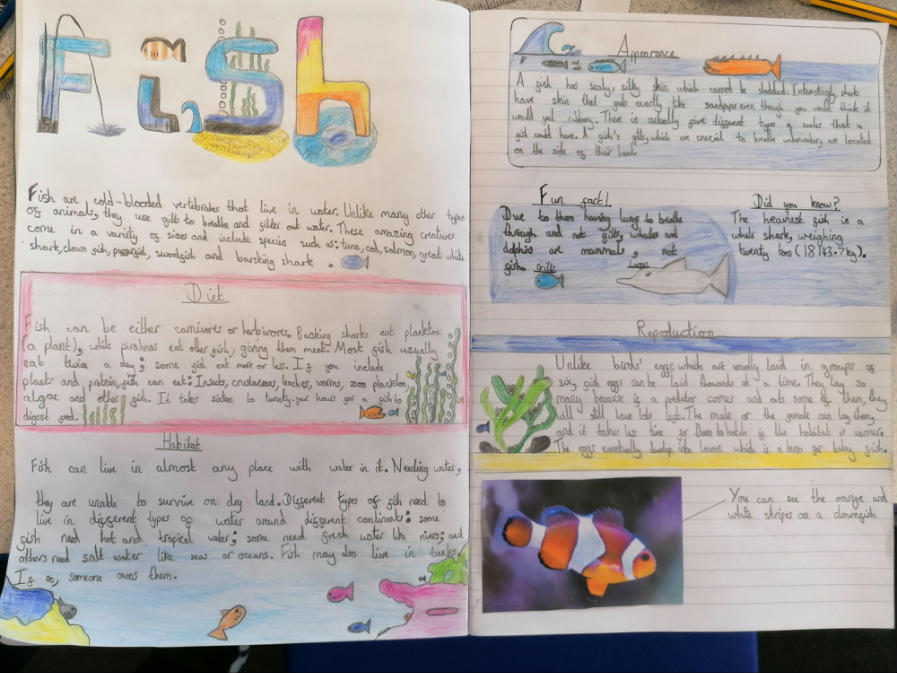 Fish
Fish are cold-blooded vertebrates that live in water. Unlike many other types
of animals, they use gills to breathe and filters out water. These amazing creatures
come in a variety of sizes and include species such as: tuna, cod, salmon, great white
shark, clown fish, swordfish and barsking shark.
Diet
Fish can be either carnivores or herbivores. Basking sharks eat plankton
(a plant); while piranas eat other fish, giving them meat. Most fish usually
eat twice a day; some fish eat more or less. If you include
plants and protein, fish can eat: Insects, crustaceans, leeches, worms, zoo plankton,
algae and other fish. It takes sixteen to twenty-four hours for a fish to
digest food.
Habitat
Fish can live in almost any place with water in it. Needing water,
they are unable to survive on dry land. Different types of fish need to
live in different types of water around different continents: some
fish need hot and tropical water; some need fresh water like rivers; and
others need salt water like seas or oceans. Fish may also live in tanks.
If so, someone owns them.
Appearance
A fish has scaly, silky skin which cannot be shedded. Interestingly, sharks
have skin that feels exactly like sandpaper even though you might think it
would feel rubbery. There is actually five different types of scales that a
fish could have. A fish's gills, which are crucial to breathe underwater, are located
on the side of their head.
Fun fact!
Due to them having lungs to breathe
through and not gills, whales and
dolphins are mammals, not
fish.
Gills
Lungs
Did you know?
The heaviest fish is a
whale shark, weighing
twenty tons (18143.7kg).
Reproduction
Unlike birds' eggs which are usually laid in groups of
six, fish eggs can be laid thousands at a time. They lay so
many because if a predator comes and eats some of them, they
will still have lots left. The male or the female can lay them,
and it takes less time for them to hatch if the habitat is warmer.
The eggs eventually develop into larvae which is a term for baby fish.
You can see the orange and
white stripes on a clownfish